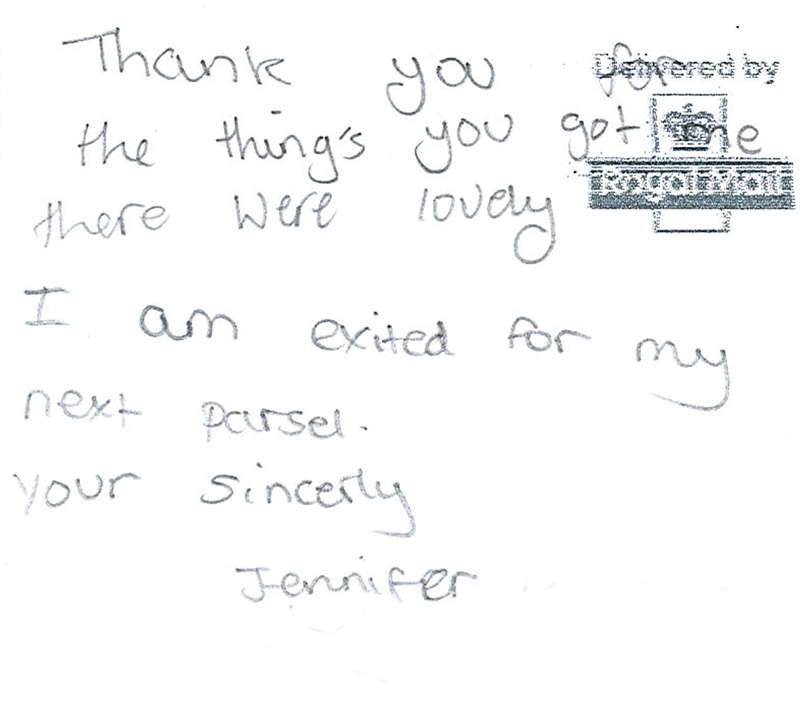 Thank you for
Delivered by
the thing's you got me
Royal Mail
there were lovely
I am exited for my
next parsel.
your sincerly
Jennifer